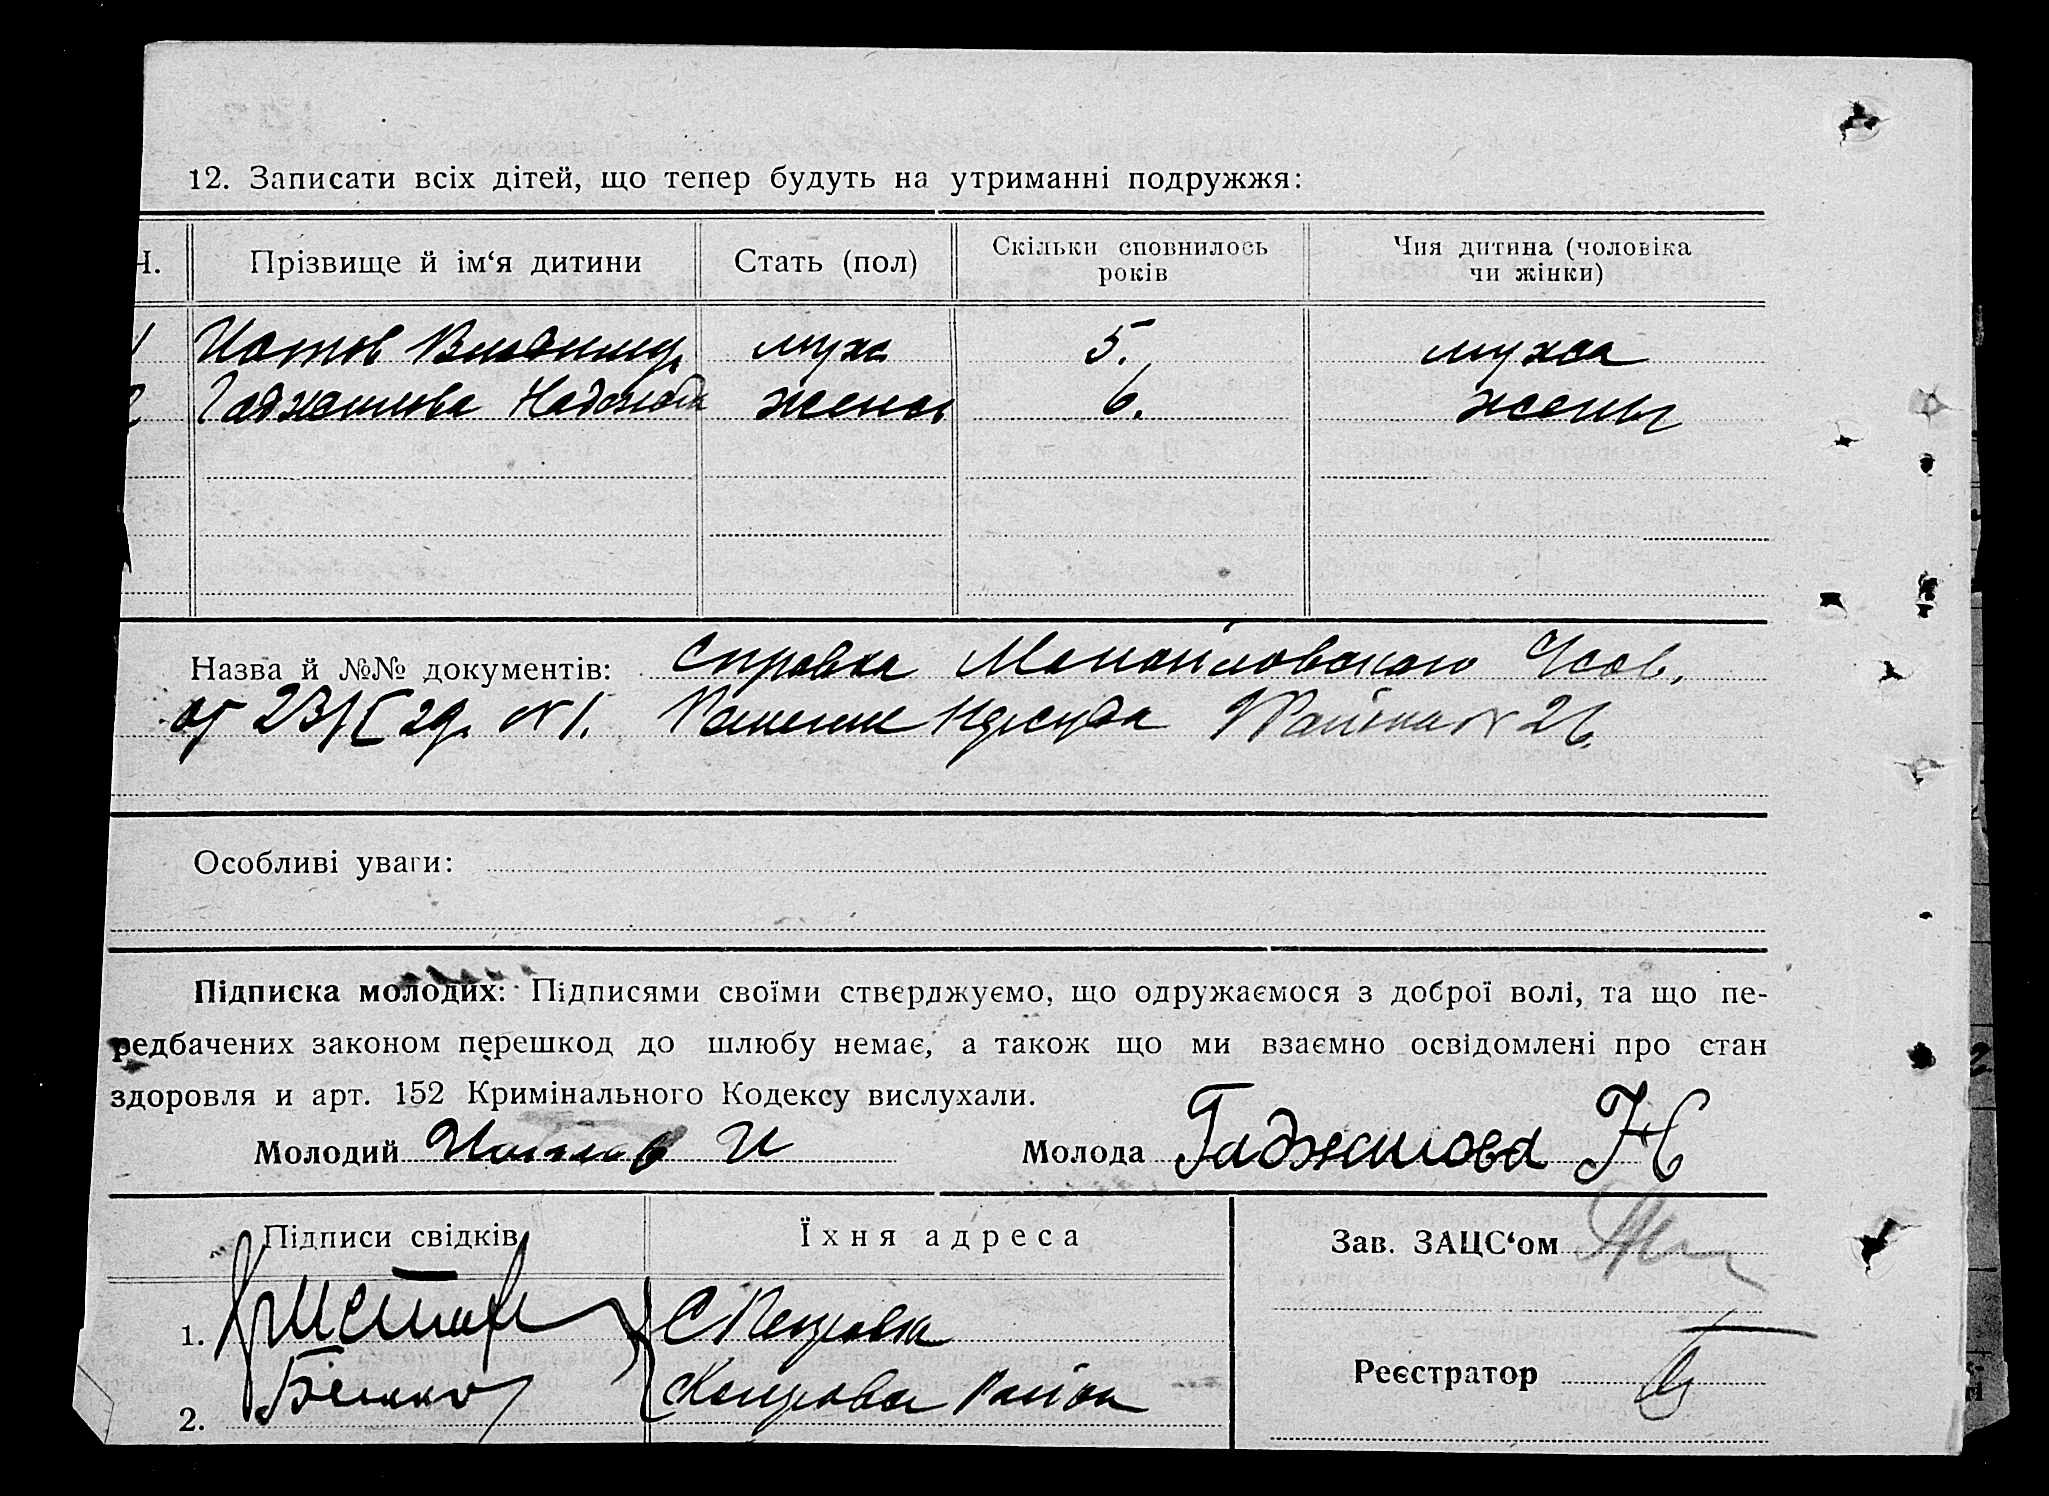 12. Записати всіх дітей, що тепер будуть на утриманні подружжя:
Ч. Прізвище й ім‘я дитини Стать (пол) Скільки сповнилось років Чия дитина (чоловіка чи жінки)
1 Владимир муж. 5. мужа
2 Гаджинова Надежда женск 6. жены
Назва й №№ документів: Справка
от 23/ 29. №1. Нарсуда № 26
Особливі уваги:
Підписка молодих: Підписями своїми стверджуємо, що одружаємося з доброї волі, та що пе-
редбачених законом перешкод до шлюбу немає, а також що ми взаємно освідомлені про стан
здоровля и арт. 152 Кримінального Кодексу вислухали.
Молодий И Молода Гаджинова Н
Підписи свідків Їхня адреса Зав. ЗАЦС‘ом
1. С Петровка
Реєстратор
2. района